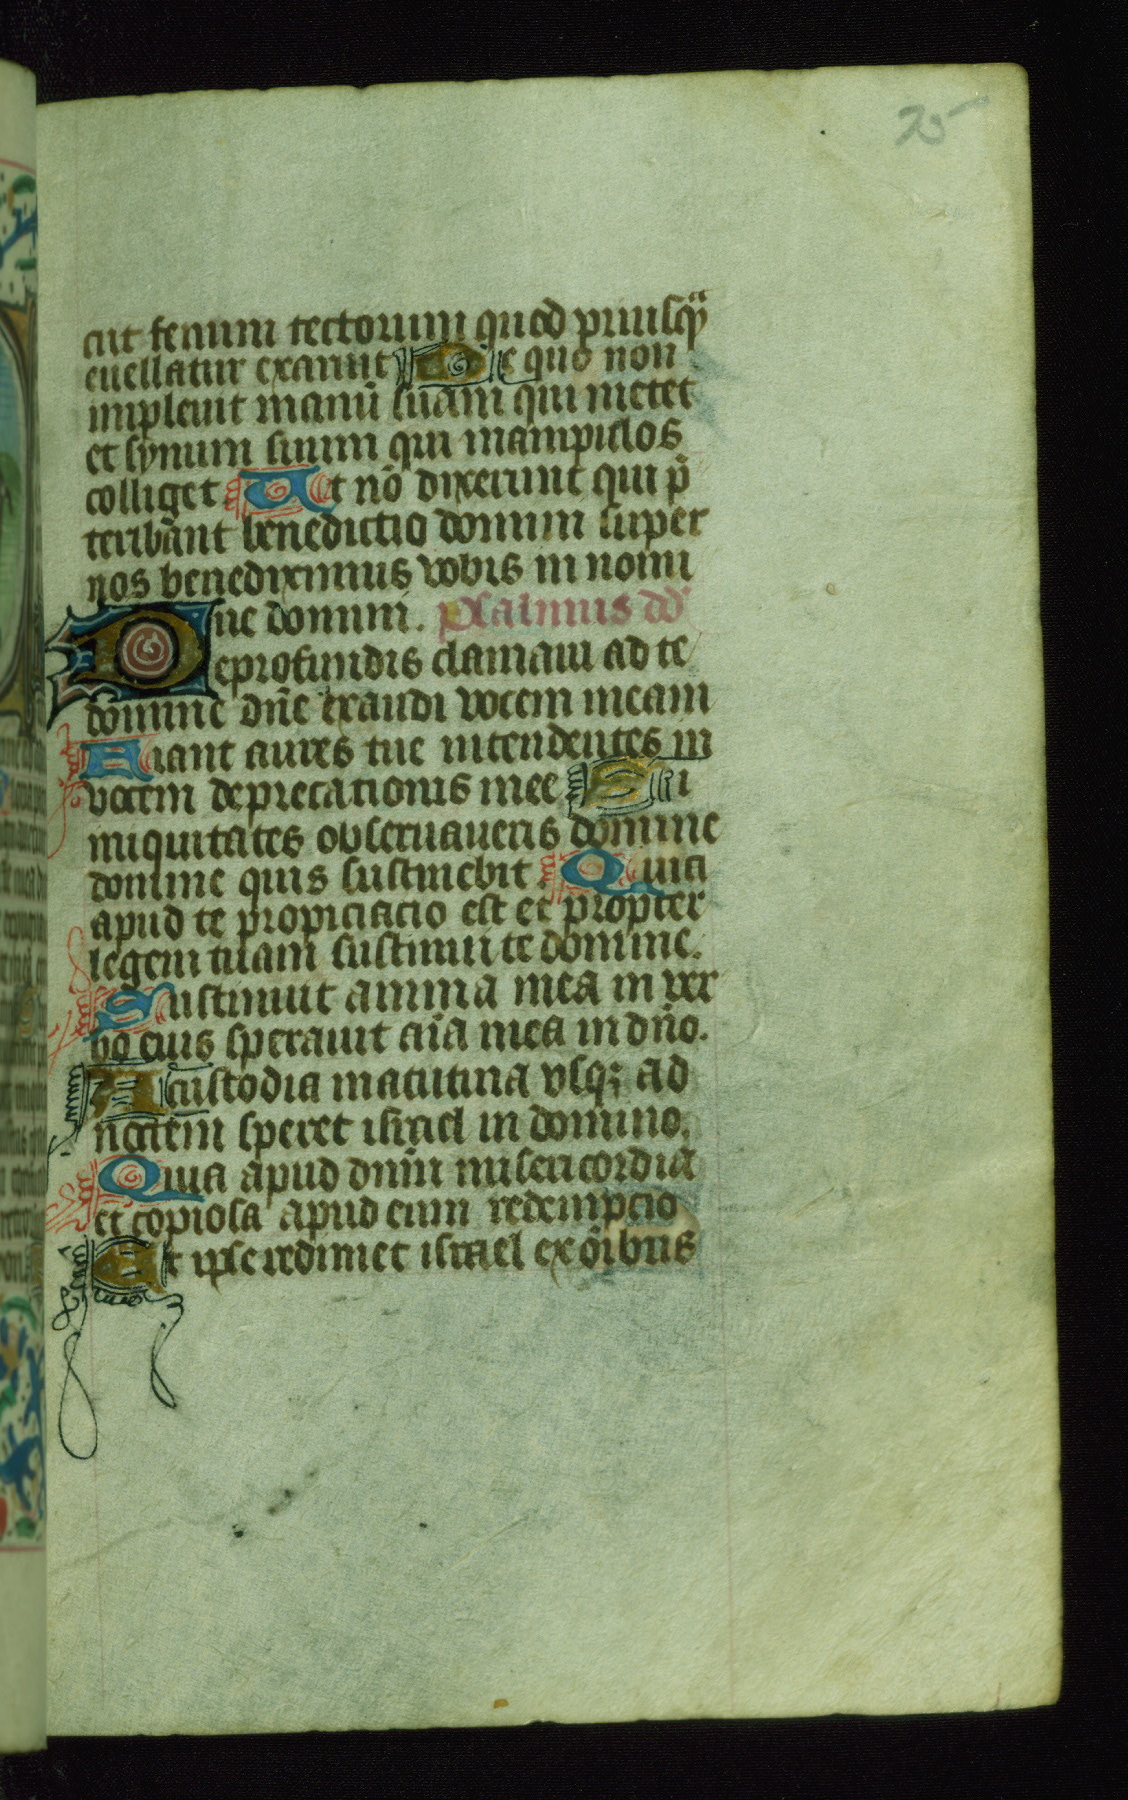 25
cut fenum tectorum quod priusqᷓ
euellatur exaruit De quo non
impleuit manū suam qui metet
et synum suum qui manipulos
colliget Et nō dixerunt qui p̄
teribant benedictio domini super
nos benediximus vobis in nomi
ne domini. psalmus dd
Deprofundis clamaui ad te
domine dn̄e exaudi vocem meam
Fiant aures tue intendentes in
vocem deprecationis mee Si
iniquitates obseruaueris domine
domine quis sustinebit Quia
apud te propiciacio est et propter
legem tuam sustinui te domine.
Sustinuit anima mea in ver
bo eius sperauit aīa mea in dn̄o.
A custodia matutina vsqꝫ ad
noctem speret israel in domino.
Quia apud dnm̄ misericordia
et copiosa apud eum redempcio
Et ipse redimet israel ex oībus